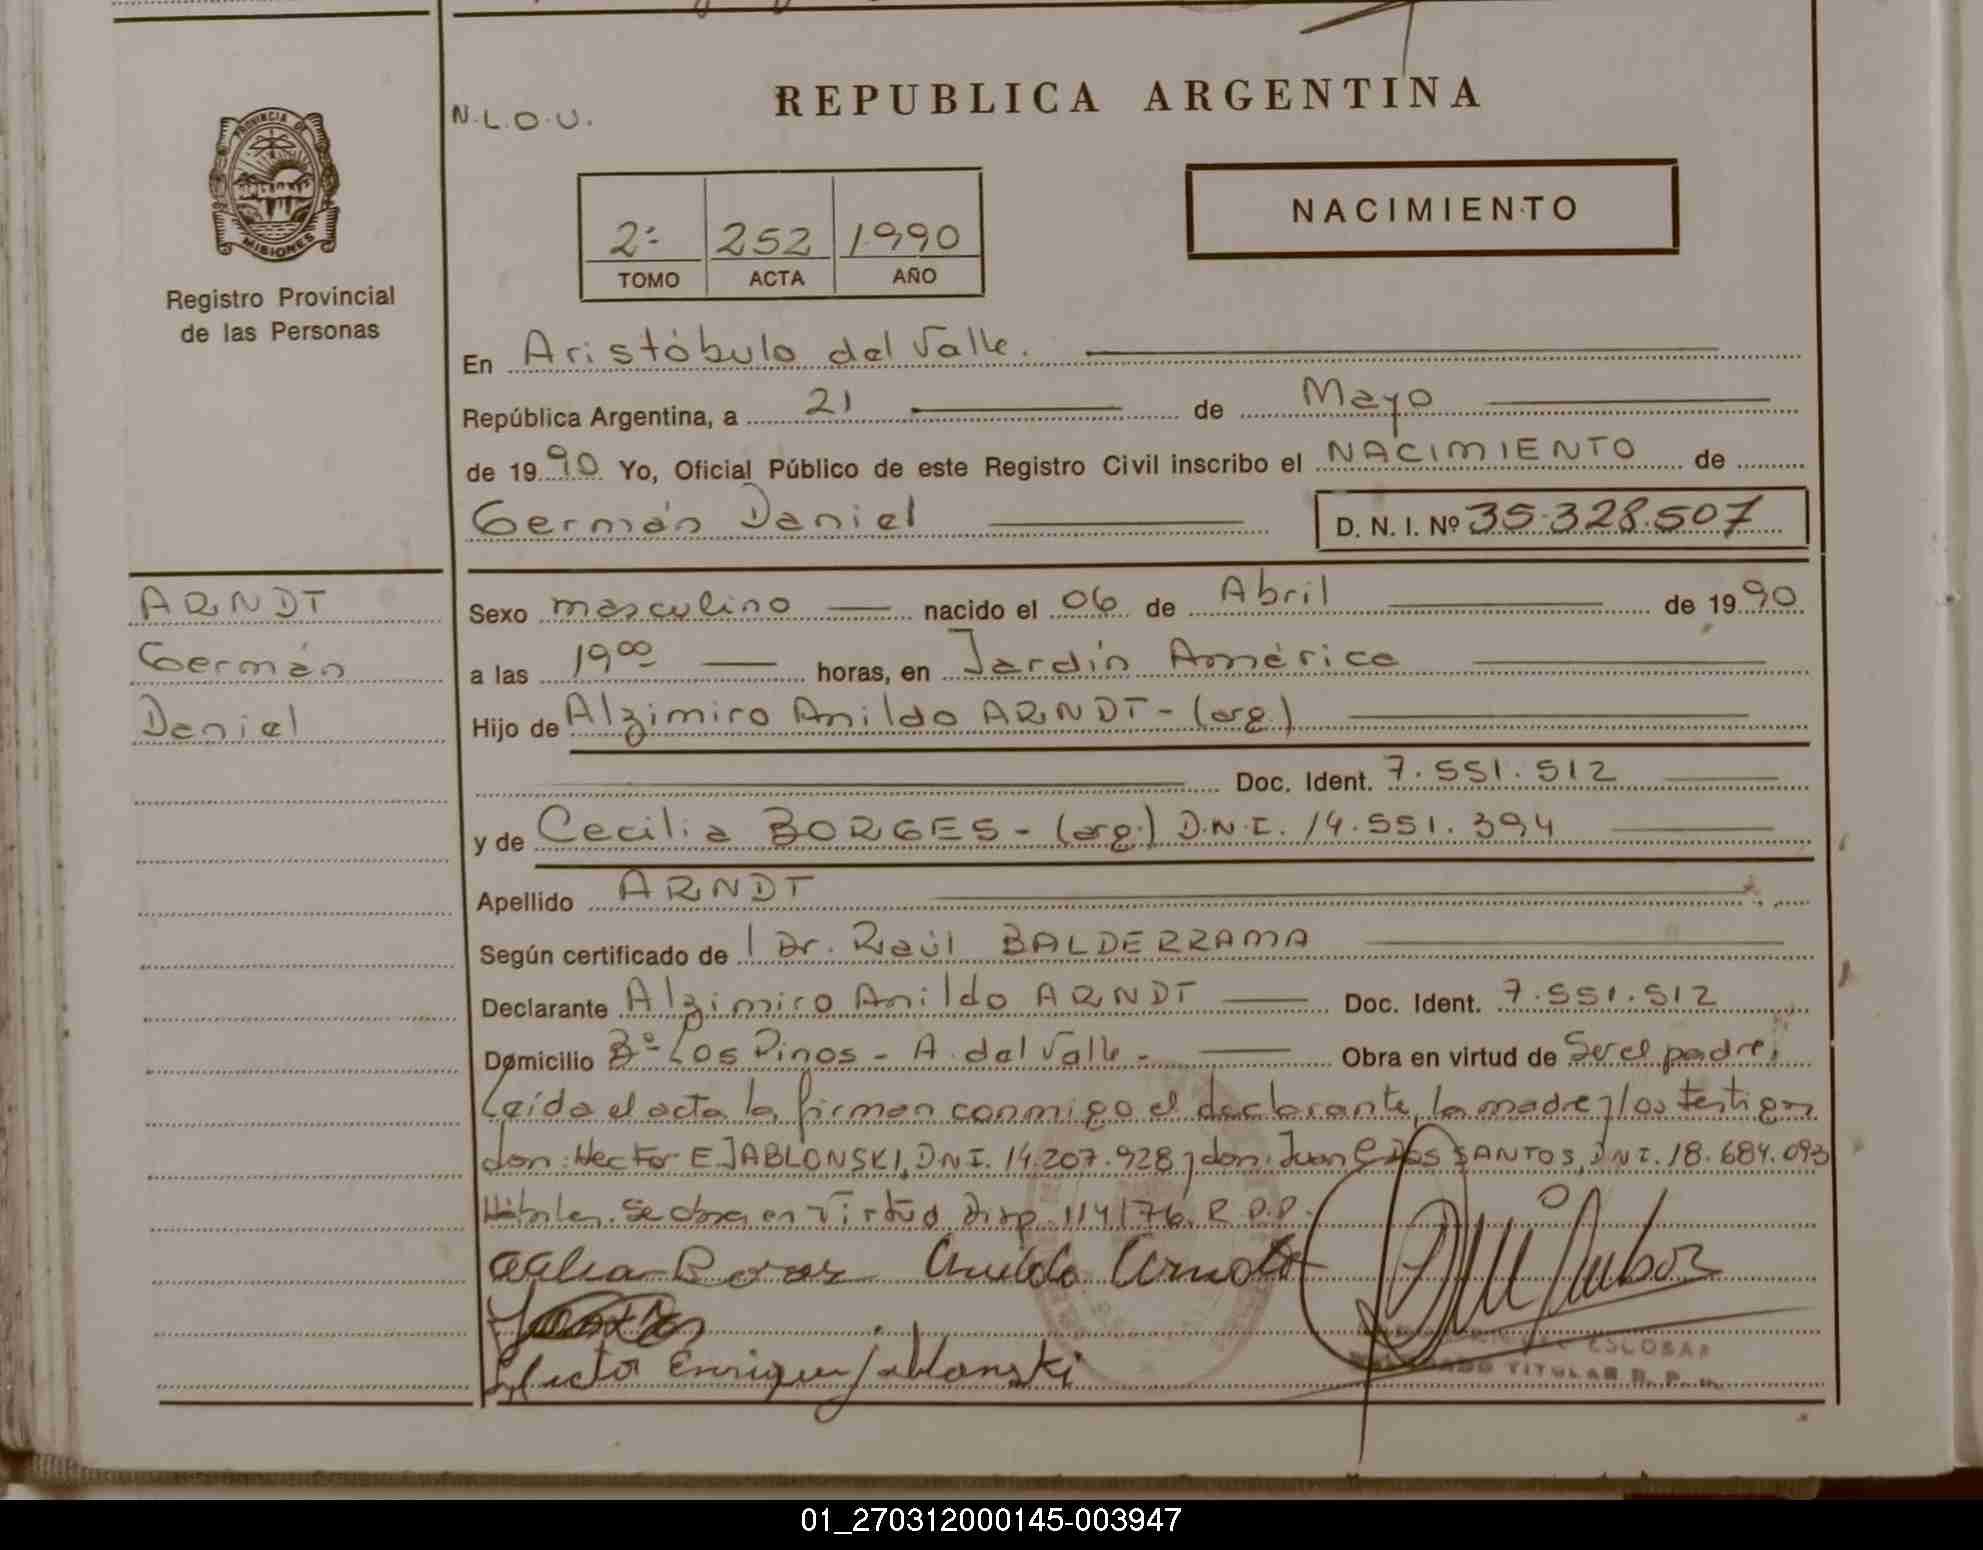 REPUBLICA ARGENTINA
N.L.O.U.
PROVINCIA DE
MISIONES
Registro Provincial
de las Personas
NACIMIENTO
2º 252 1990
TOMO ACTA AÑO
En Aristóbulo del Valle.
República Argentina, a 21 de Mayo
de 1990 Yo, Oficial Público de este Registro Civil inscribo el NACIMIENTO de
Germán Daniel D. N. I. Nº 35.328.507
ARNDT
Germán
Daniel
Sexo masculino nacido el 06 de Abril de 1990
a las 19⁰⁰ horas, en Jardín América
Hijo de Alzimiro Anildo ARNDT - (arg.)
Doc. Ident. 7.551.512
y de Cecilia BORGES - (arg.) D.N.I. 14.551.394
Apellido ARNDT
Según certificado de l Dr. Raúl BALDERRAMA
Declarante Alzimiro Anildo ARNDT Doc. Ident. 7.551.512
Domicilio Bº Los Pinos - A. del Valle - Obra en virtud de Ser el padre,
Leída el acta la firman conmigo el declarante, la madre y los testigos
don: Hector E JABLONSKI, D.N.I. 14.207.928 y don: Juan DOS SANTOS, D.N.I. 18.684.093
Hábiles. Se obra en Virtud Disp. 114/76. R.P.P.
Anildo Arndt
Hecto Enrique jablonski
ESCOBAR
TITULAR R. P.
01_270312000145-003947